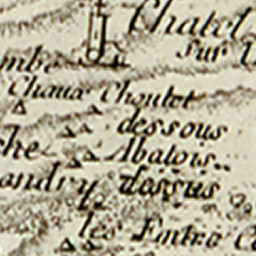 Chatel
sur
Chaux Choulet
dessous
che Abatois
andry dessus
les Entre Co